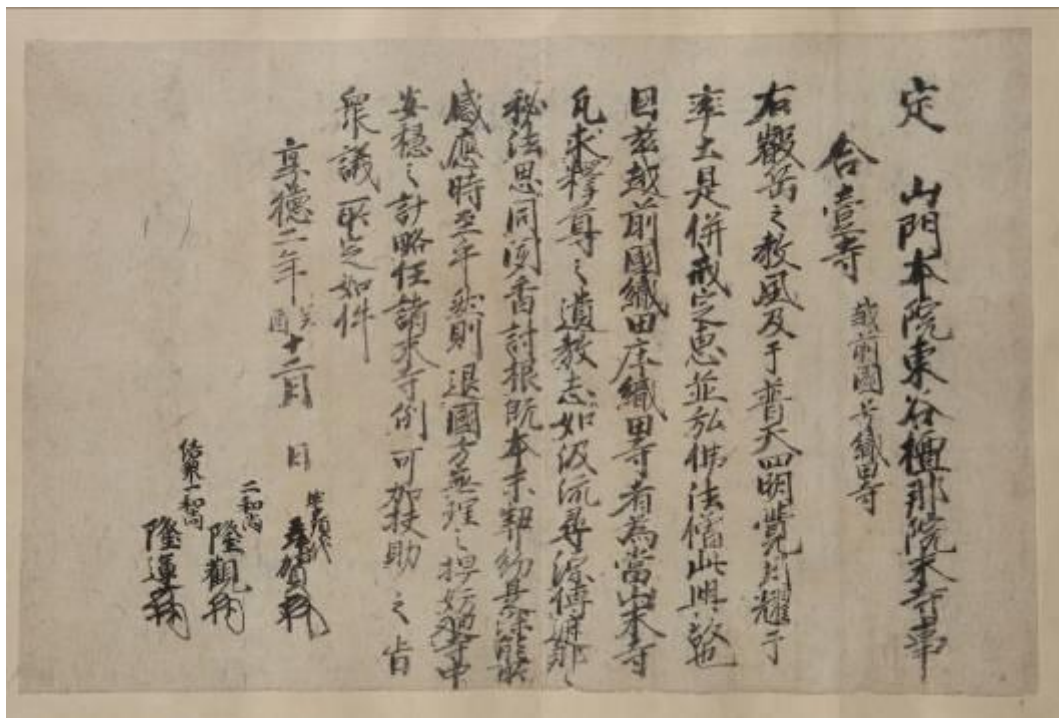 定　山門本院東谷檀那院末寺事
合壹寺　越前國号織田寺
右叡岳之教風及于普天四明覺月耀于
率土是併戒定恵並弘佛法僧此興
因茲越前國織田庄織田寺者為當山末寺
凡求釋尊之遺教志如汲流尋源傳
秘法思同聞香討根既本末契約
感應時至乎然則退國方無理之
安穏之計略任諸末寺例可加扶助之旨
衆議所定如件
享徳二年癸酉十二月　日
二和尚
隆觀
一和尚
隆運